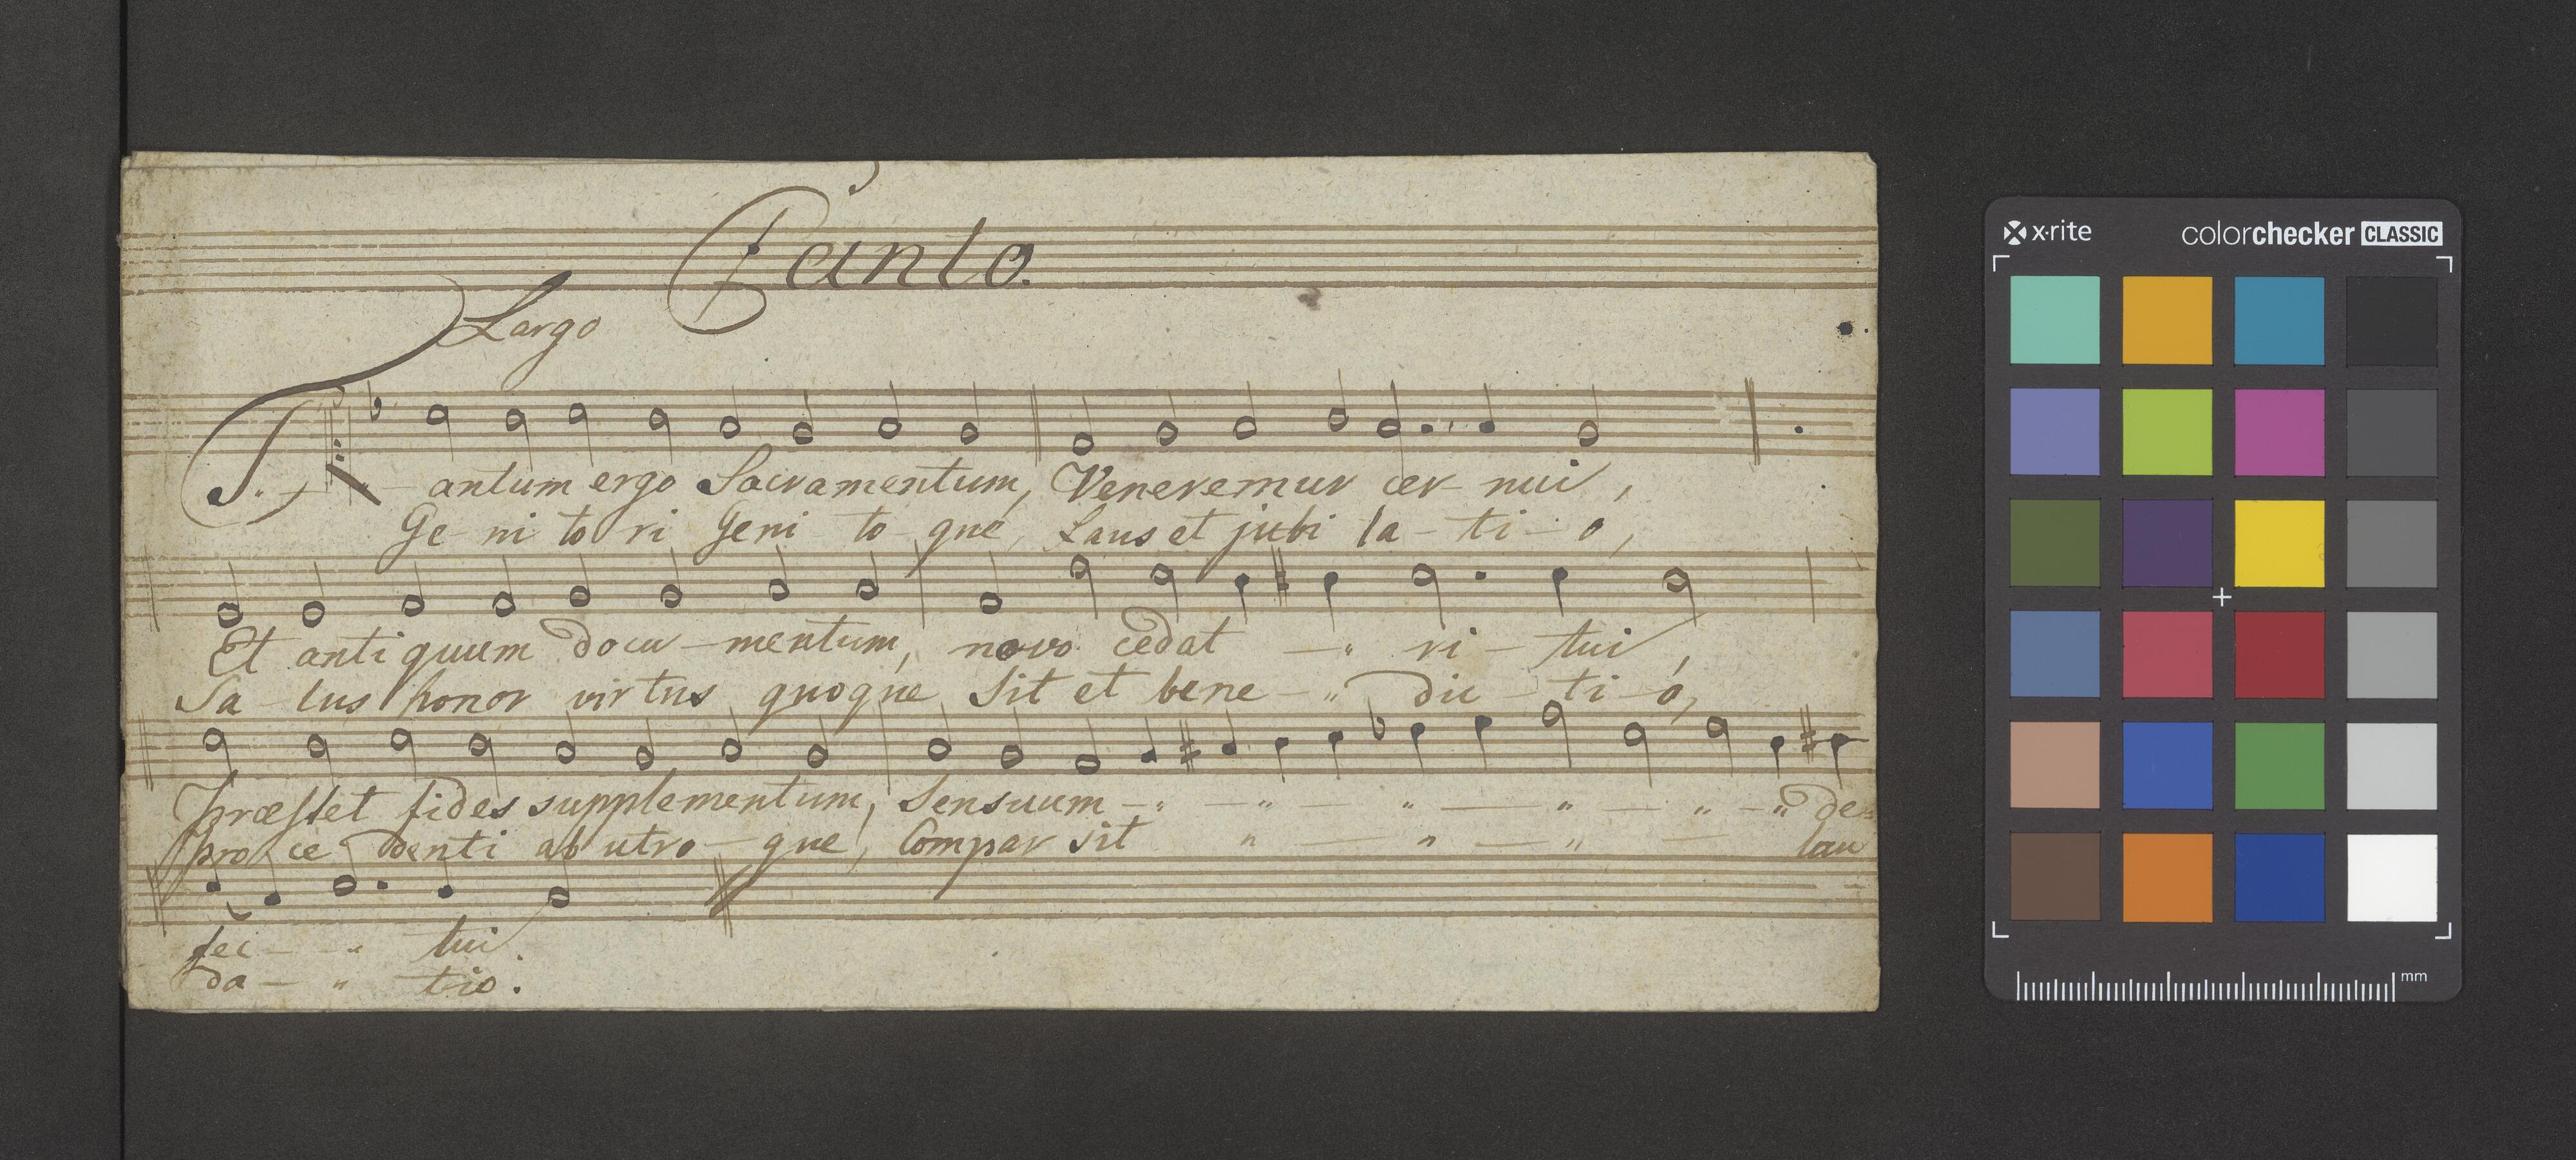 Canto.
Largo
T. antum ergo Sacramentum, Veneremur cer- nui,
Ge- ni to ri Geni to- que, Laus et jubi la- ti- o,
Et anti quum docu-mentum, novo cedat - " ri- tui,
Sa- lus honor virtus quoque Sit et bene- " dic- ti- o,
Præstet fides supplementum, Sensuum - " - " " - " - " - " de=
pro ce denti ab utro- que, Compar sit " - " - " - lau
fec- - " tui.
da- " tio.
x·rite
colorchecker CLASSIC
mm